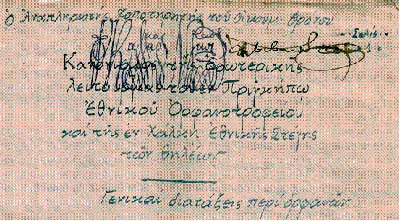 ὁ Ἀναπληρωτής Τοποτηρητής τοῦ Οἰκουμ. Θρόνου
Κανονισμός τῆς ἐσωτερικῆς
λειτουργίας τοῦ ἐν Πριγκήπῳ
Ἐθνικοῦ Ὀρφανοτροφείου
καὶ τῆς ἐν Χάλκῃ Ἐθνικῆς Στέγης
τῶν θηλέων
Γενικαὶ διατάξεις περὶ ὀρφανῶν